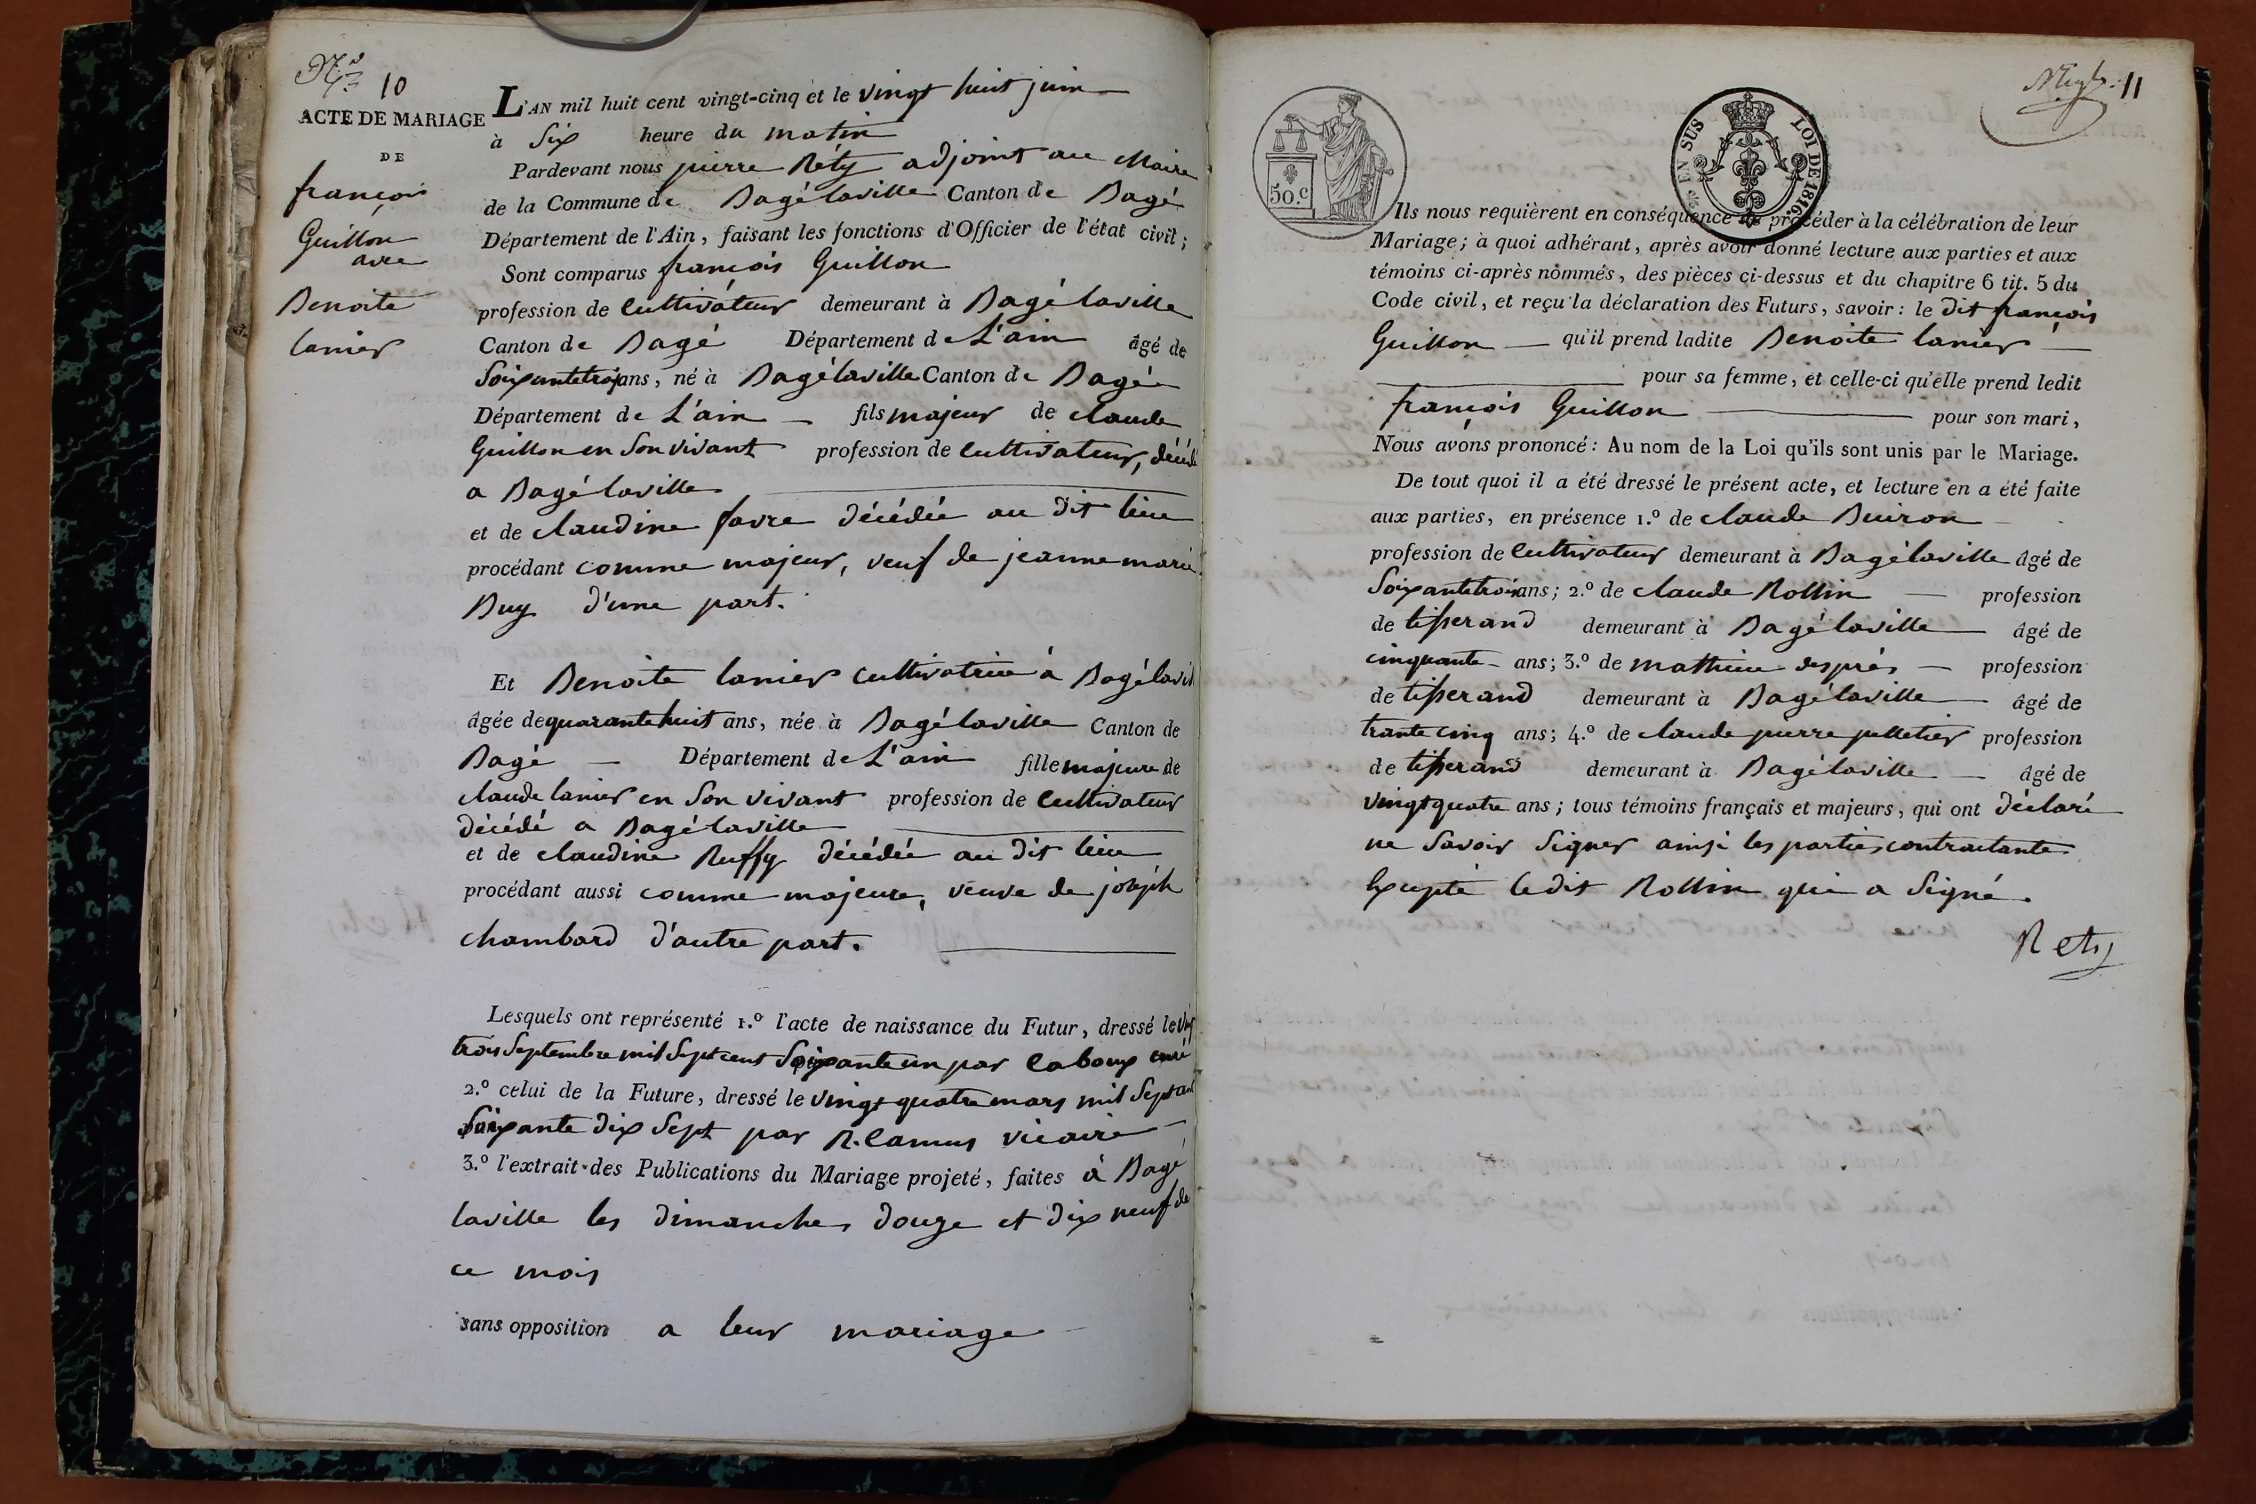 N.o 10
ACTE DE MARIAGE
DE
françois
Guillon
avec
Benoite
lanier
L'AN mil huit cent vingt-cinq et le vingt huit juin
à Six heure du matin
Pardevant nous pierre Réty adjoint au Maire
de la Commune de Bagélaville Canton de Bagé
Département de l'Ain, faisant les fonctions d'Officier de l'état civil ;
Sont comparus françois Guillon
profession de Cultivateur demeurant à Bagé laville
Canton de Bagé Département de L'ain âgé de
Soixantetrois ans, né à Bagélaville Canton de Bagé
Département de L'ain fils majeur de claude
Guillon en Son vivant profession de Cultivateur, décédé
a Bagé laville
et de claudine favre décédée au dit lieu
procédant comme majeur, veuf de jeanne marie
Buy d'une part.
Et Benoite lanier cultivatrice à Bagélavil
âgée de quarantehuit ans, née à Bagélaville Canton de
Bagé Département de L'ain fille majeure de
claude lanier en Son vivant profession de Cultivateur
décédé a Bagélaville
et de claudine Ruffy décédée au dit lieu
procédant aussi comme majeure, veuve de joseph
chambard d'autre part.
Lesquels ont représenté 1.º l'acte de naissance du Futur, dressé le vingt
trois Septembre mil Sept cent Soixante un par caboup curé
2.º celui de la Future, dressé le vingt quatre mars mil Sept cent
Soixante dix Sept par R. Camus vicaire
3.º l'extrait des Publications du Mariage projeté, faites à Bagé
laville les dimanches douze et dix neuf de
ce mois
sans opposition a leur mariage
11
50.C
EN SUS
LOI DE 1816.
Ils nous requièrent en conséquence de procéder à la célébration de leur
Mariage ; à quoi adhérant, après avoir donné lecture aux parties et aux
témoins ci-après nommés, des pièces ci-dessus et du chapitre 6 tit. 5 du
Code civil, et reçu la déclaration des Futurs, savoir : le dit françois
Guillon qu'il prend ladite Benoite lanier
pour sa femme, et celle-ci qu'elle prend ledit
françois Guillon pour son mari,
Nous avons prononcé : Au nom de la Loi qu'ils sont unis par le Mariage.
De tout quoi il a été dressé le présent acte, et lecture en a été faite
aux parties, en présence 1.º de claude Buiron
profession de Cultivateur demeurant à Bagélaville âgé de
Soixantetrois ans ; 2.º de claude Rollin profession
de tisserand demeurant à Bagélaville âgé de
cinquante ans ; 3.º de mathieu desprès profession
de tisserand demeurant à Bagélaville âgé de
trante cinq ans ; 4.º de claude pierre pelletier profession
de tisserand demeurant à Bagélaville âgé de
vingtquatre ans ; tous témoins français et majeurs, qui ont déclaré
ne Savoir Signer ainsi les parties contractante
Excepté ledit Rollin qui a Signé.
Rety